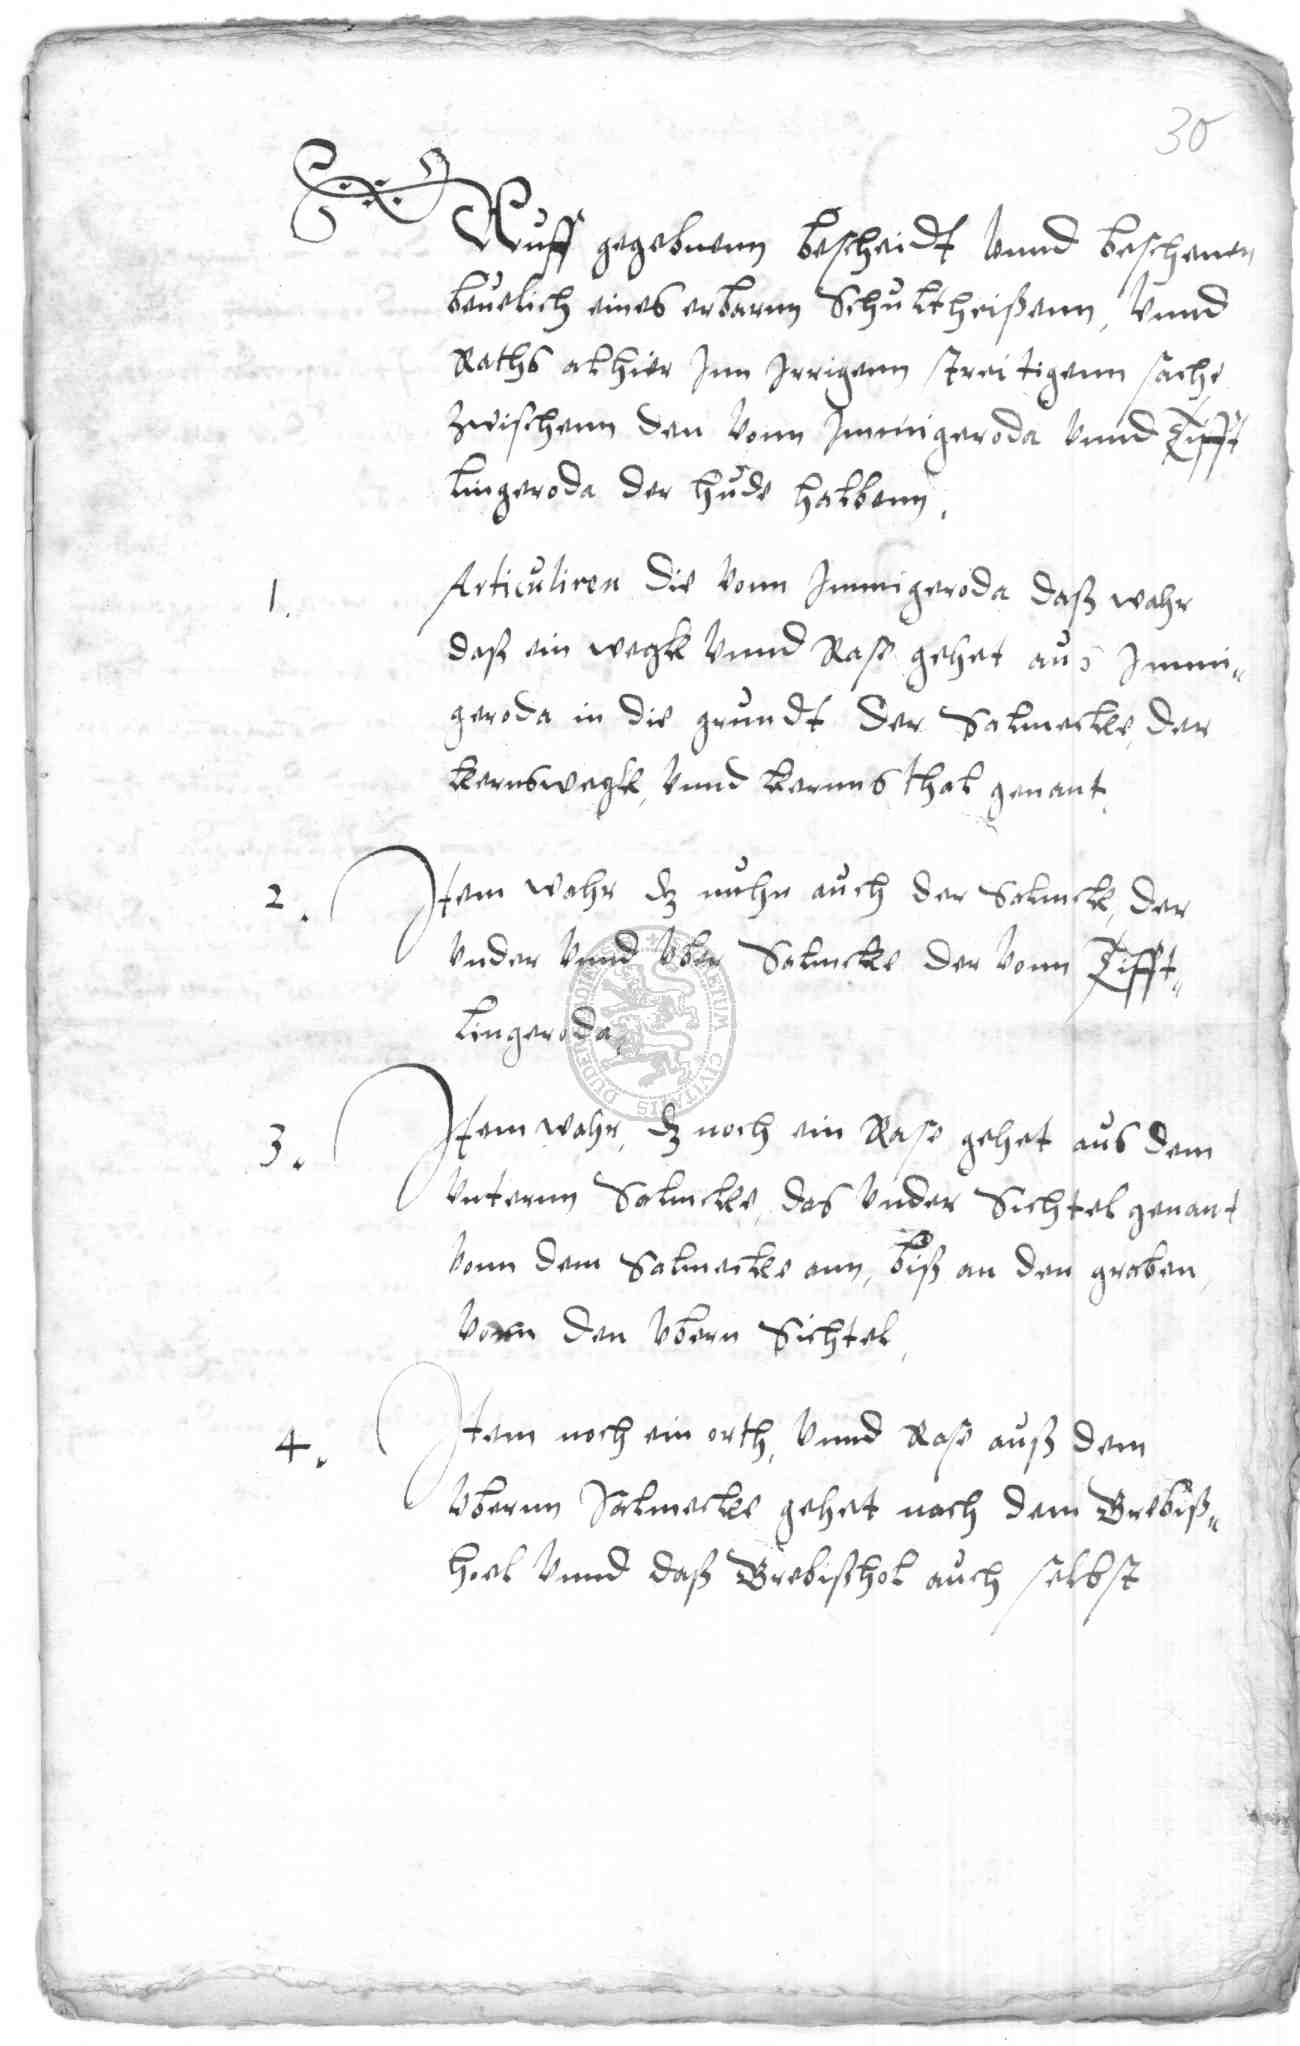 30
Auff gegebnenn bescheidt vnnd beschenen
beuelich eines erbarnn Schultheißenn, Vnnd
Raths alhier Jnn Jrrigenn streitigenn sache
zwischenn den vonn Jmmigeroda vnnd Tifft
lingeroda der hude halbenn,
1. Articuliren die vonn Jmmigeroda daß wahr
daß ein wegk vnnd Rase gehet aus Jmmi„
geroda in die grundt der Salmecke, der
kernswegk, vnnd kernnsthal genant,
2. Jtem wahr dz nuhn auch der Salmck, der
vnder vnnd vber Salmcke der vonn Tifft„
lingeroda,
3. Jtem wahr, dz noch ein Rase gehet aus dem
vnternn Salmcke, das vnder Sichtel genant
vonn dem Salmecke ann, biß an den graben,
vonn den vbern Sichtel,
4. Jtem noch ein orth, vnnd Rase auß dem
vbernn Salmecke gehet nach dem Brebiß„
hoel vnnd daß Brebißhol auch selbst
DUDER CIVITATIS